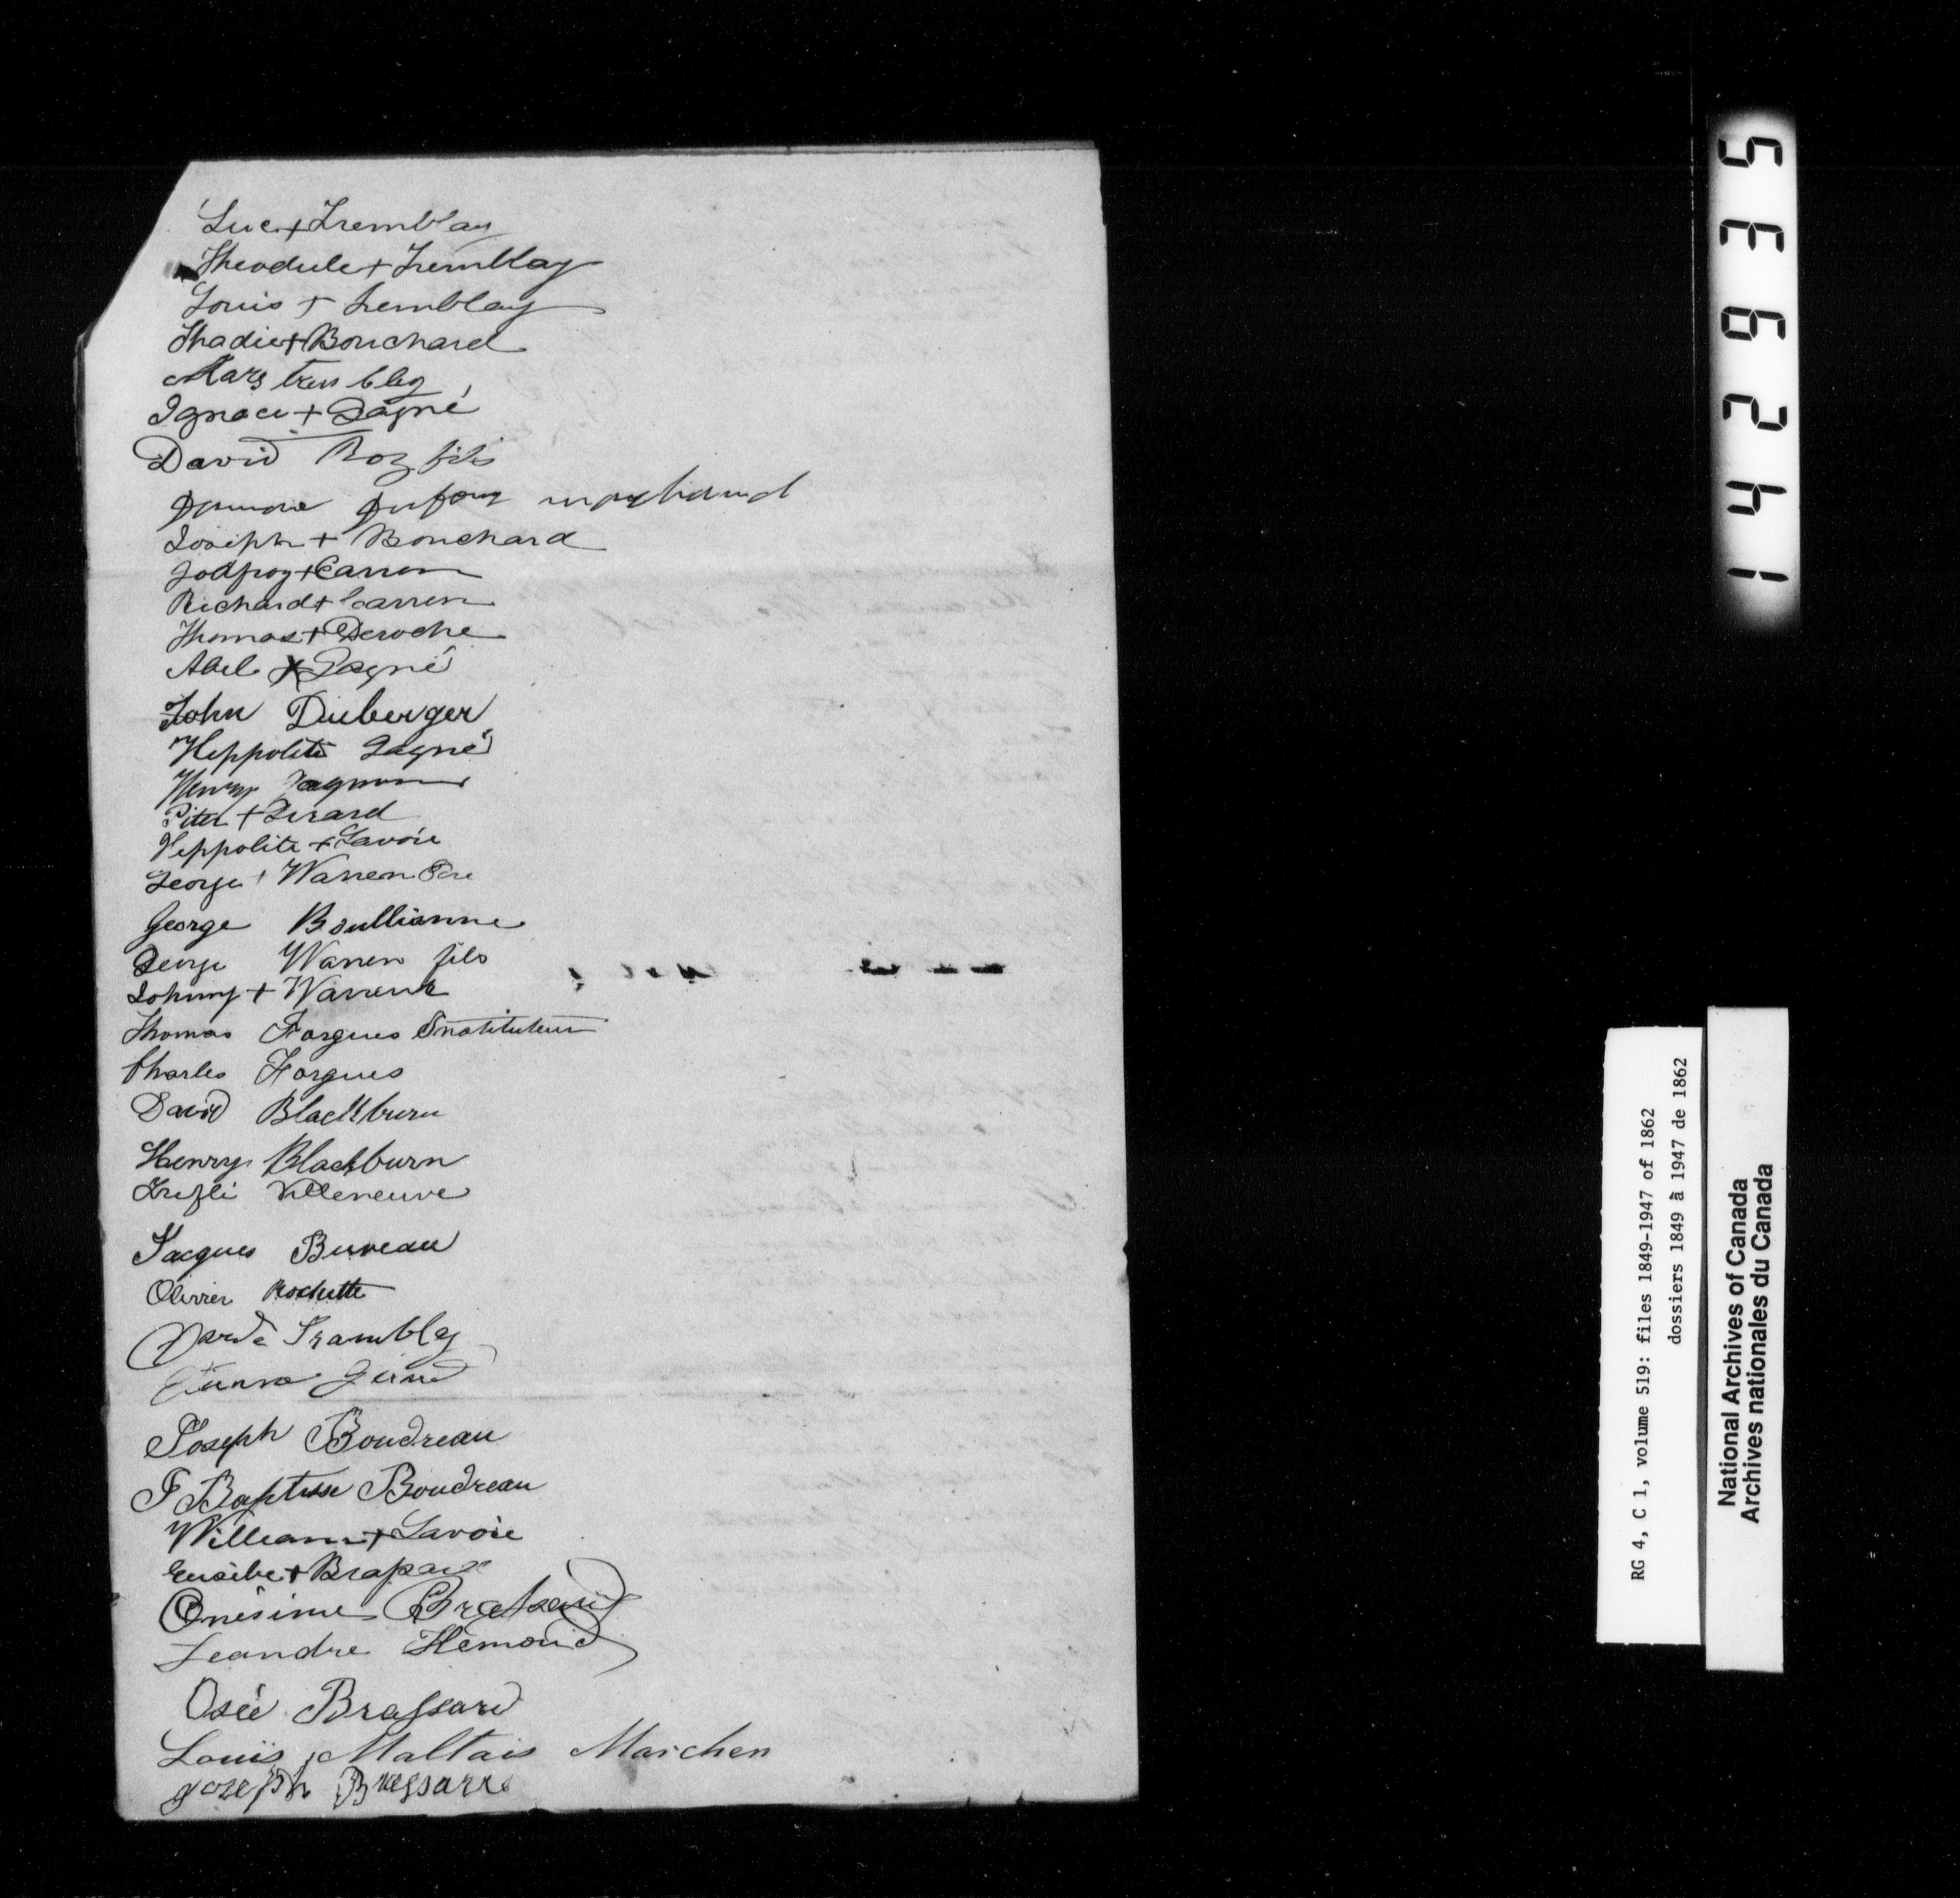 Luc + Tremblay
Theodule + Tremblay
Louis + Tremblay
Thadie + Bouchard
Mars trembley
Ignace + Gagné
David Roy fils
Dufour marchand
Joseph + Bouchard
Godfroy + Carron
Richard + Carron
Thomas + Deroche
Abel + Gagné
John Duberger
Heppolite Gagné
Henry Gagnon
Piter + Girard
Heppolite + Savoie
George + Warren Pere
George Boullianne
George Warren fils
Johnny + Warren
Thomas Forgues Instituteur
Charles Forgues
David Blackburn
Henry Blackburn
Treflé Villeneuve
Jacques Bureau
Olivier Rochette
Trambley
Joseph Boudreau
J Baptiste Boudreau
William + Savoie
Eusèbe + Brassard
Onésime Brassard
Leandre Hémond
Osée Brassard
Louis Maltais Marchen
Joseph Brassard
1 4 2 6 3 5
RG 4, C 1, volume 519: files 1849-1947 of 1862
dossiers 1849 à 1947 de 1862
National Archives of Canada
Archives nationales du Canada